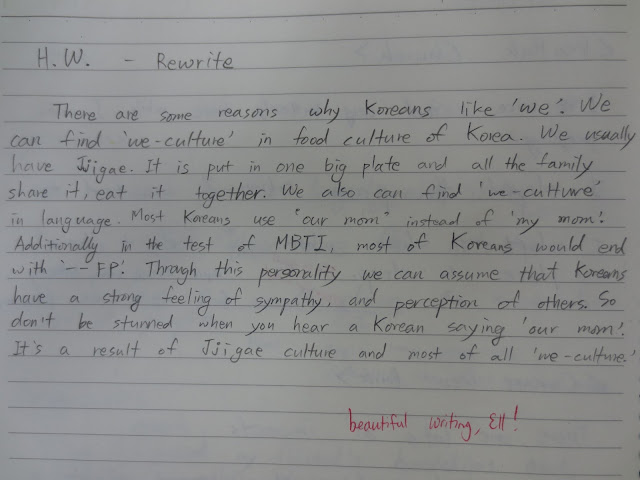 H.W. - Rewrite
There are some reasons why Koreans like 'we'. We
can find 'we-culture' in food culture of Korea. We usually
have Jjigae. It is put in one big plate and all the family
share it, eat it together. We also can find 'we-culture'
in language. Most Koreans use "our mom" instead of 'my mom'.
Additionally in the test of MBTI, most of Koreans would end
with '--FP'. Through this personality we can assume that Koreans
have a strong feeling of sympathy, and perception of others. So
don't be stunned when you hear a Korean saying 'our mom'.
It's a result of Jjigae culture and most of all 'we-culture.'
beautiful writing, !